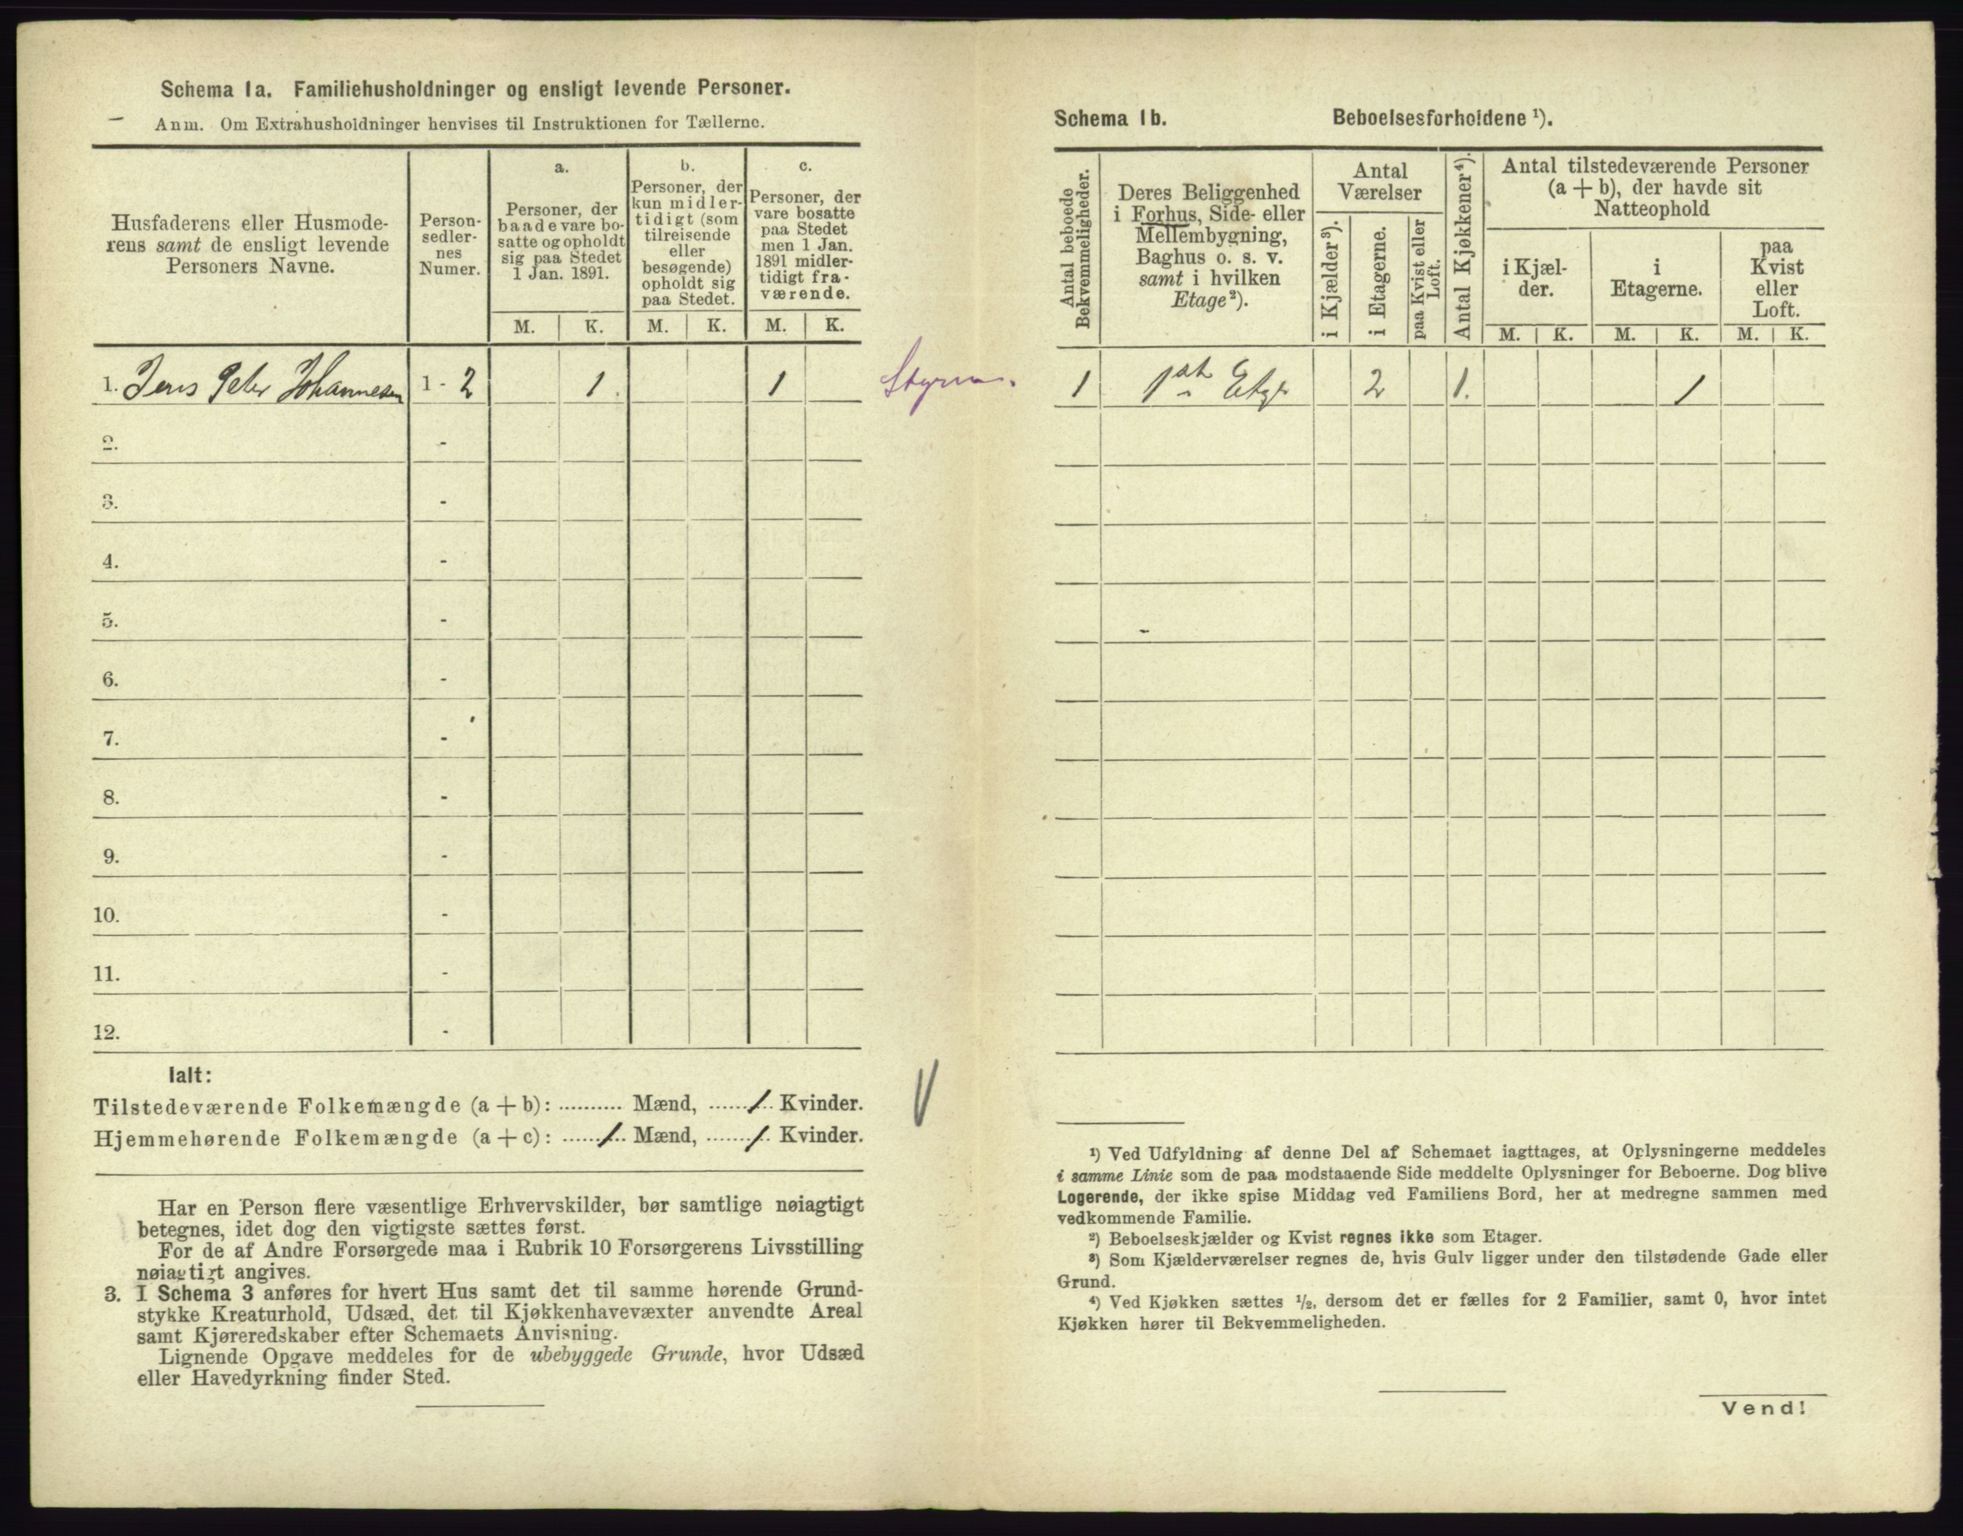 Schema 1a. Familiehusholdninger og ensligt levende Personer.
Anm. Om Extrahusholdninger henvises til Instruktionen for Tællerne.
Husfaderens eller Husmode-
rens samt de ensligt levende
Personers Navne.
Person-
sedler-
nes
Numer.
a.
Personer, der
baade vare bo-
satte og opholdt
sig paa Stedet
1 Jan. 1891.
b.
Personer, der
kun midler-
tidigt (som
tilreisende
eller
besøgende)
opholdt sig
paa Stedet.
c.
Personer, der
vare bosatte
paa Stedet
men 1 Jan.
1891 midler-
tidigt fra-
værende.
M. K. M. K. M. K.
1. Jens Peter Johannesen 1 - 2 1. 1
2. -
3. -
4. -
5. -
6. -
7. -
8. -
9. -
10. -
11. -
12. -
Ialt:
Tilstedeværende Folkemængde (a + b): .......... Mænd, ...... 1 .. Kvinder.
Hjemmehørende Folkemængde (a + c): ...... 1 .. Mænd, ...... 1 .. Kvinder.
Har en Person flere væsentlige Erhvervskilder, bør samtlige nøiagtigt
betegnes, idet dog den vigtigste sættes først.
For de af Andre Forsørgede maa i Rubrik 10 Forsørgerens Livsstilling
nøiagtigt angives.
3. I Schema 3 anføres for hvert Hus samt det til samme hørende Grund-
stykke Kreaturhold, Udsæd, det til Kjøkkenhavevæxter anvendte Areal
samt Kjøreredskaber efter Schemaets Anvisning.
Lignende Opgave meddeles for de ubebyggede Grunde, hvor Udsæd
eller Havedyrkning finder Sted.
Schema 1b. Beboelsesforholdene ¹).
Antal beboede
Bekvemmeligheder.
Deres Beliggenhed
i Forhus, Side- eller
Mellembygning,
Baghus o. s. v.
samt i hvilken
Etage²).
Antal
Værelser
i Kjælder³).
i Etagerne.
paa Kvist eller
Loft.
Antal Kjøkkener⁴).
Antal tilstedeværende Personer
(a + b), der havde sit
Natteophold
i Kjæl-
der.
i
Etagerne.
paa
Kvist
eller
Loft.
M. K. M. K. M. K.
1 1st Etge 2 1. 1
¹) Ved Udfyldning af denne Del af Schemaet iagttages, at Oplysningerne meddeles
i samme Linie som de paa modstaaende Side meddelte Oplysninger for Beboerne. Dog blive
Logerende, der ikke spise Middag ved Familiens Bord, her at medregne sammen med
vedkommende Familie.
²) Beboelseskjælder og Kvist regnes ikke som Etager.
³) Som Kjælderværelser regnes de, hvis Gulv ligger under den tilstødende Gade eller
Grund.
⁴) Ved Kjøkken sættes ½, dersom det er fælles for 2 Familier, samt 0, hvor intet
Kjøkken hører til Bekvemmeligheden.
Vend!